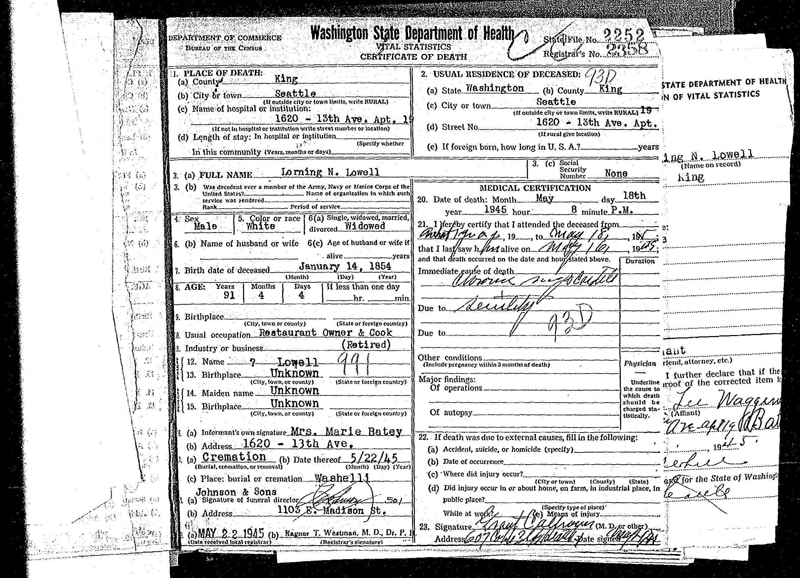 DEPARTMENT OF COMMERCE
BUREAU OF THE CENSUS
Washington State Department of Health
VITAL STATISTICS
CERTIFICATE OF DEATH
State File No. 2252
Registrar's No. 2358
1. PLACE OF DEATH:
(a) County King
(b) City or town Seattle
(If outside city or town limits, write RURAL)
(c) Name of hospital or institution:
1620 - 13th Ave. Apt. 19
(If not in hospital or institution write street number or location)
(d) Length of stay: In hospital or institution
(Specify whether
In this community (Years, months or days)
2. USUAL RESIDENCE OF DECEASED: 93D
(a) State Washington (b) County King
(c) City or town Seattle
(If outside city or town limits, write RURAL) 19
(d) Street No. 1620 - 13th Ave. Apt.
(If rural give location)
(e) If foreign born, how long in U. S. A.? years
3. (a) FULL NAME Lorning N. Lowell
3. (c) Social Security Number None
3. (b) Was deceased ever a member of the Army, Navy or Marine Corps of the
United States? Name of organization in which such
service was rendered
Rank Period of service
4. Sex Male
5. Color or race White
6(a) Single, widowed, married, divorced Widowed
6. (b) Name of husband or wife 6(c) Age of husband or wife if
alive years
7. Birth date of deceased January 14, 1854
(Month) (Day) (Year)
8. AGE: Years Months Days If less than one day
91 4 4 hr. min.
9. Birthplace
(City, town or county) (State or foreign country)
Usual occupation Restaurant Owner & Cook
Industry or business (Retired)
12. Name ? Lowell 991
13. Birthplace Unknown
(City, town, or county) (State or foreign country)
14. Maiden name Unknown
15. Birthplace Unknown
(City, town, or county) (State or foreign country)
(a) Informant's own signature Mrs. Marie Batey
(b) Address 1620 - 13th Ave.
(a) Cremation (b) Date thereof 5/22/45
(Burial, cremation, or removal) (Month) (Day) (Year)
(c) Place: burial or cremation Washelli
Johnson & Sons
(a) Signature of funeral director 501
(b) Address 1103 E. Madison St.
(a) MAY 22 1945 (b) Ragnar T. Westman, M. D., Dr. P. H
(Date received local registrar) (Registrar's signature)
MEDICAL CERTIFICATION
20. Date of death: Month May day 18th
year 1945 hour 8 minute P.M.
21. I hereby certify that I attended the deceased from
19 to May 18, 19
that I last saw him alive on May 16, 1945,
and that death occurred on the date and hour stated above.
Duration
Immediate cause of death
Chronic myocarditis
Due to senility
93D
Due to
Other conditions
(Include pregnancy within 3 months of death)
Physician
Major findings:
Of operations
Of autopsy
Underline the cause to which death should be charged statistically.
22. If death was due to external causes, fill in the following:
(a) Accident, suicide, or homicide (specify)
(b) Date of occurrence
(c) Where did injury occur?
(City or town) (County) (State)
(d) Did injury occur in or about home, on farm, in industrial place, in
public place?
(Specify type of place)
While at work? (e) Means of injury
23. Signature Grant Calhoun (M. D. or other)
Address Date signed
STATE DEPARTMENT OF HEALTH
N OF VITAL STATISTICS
ing N. Lowell
(Name on record)
King
iant
riend, attorney, etc.)
I further declare that if the
roof of the corrected item
Lee
(Affiant)
1945.
and for the State of Washing
Seattle